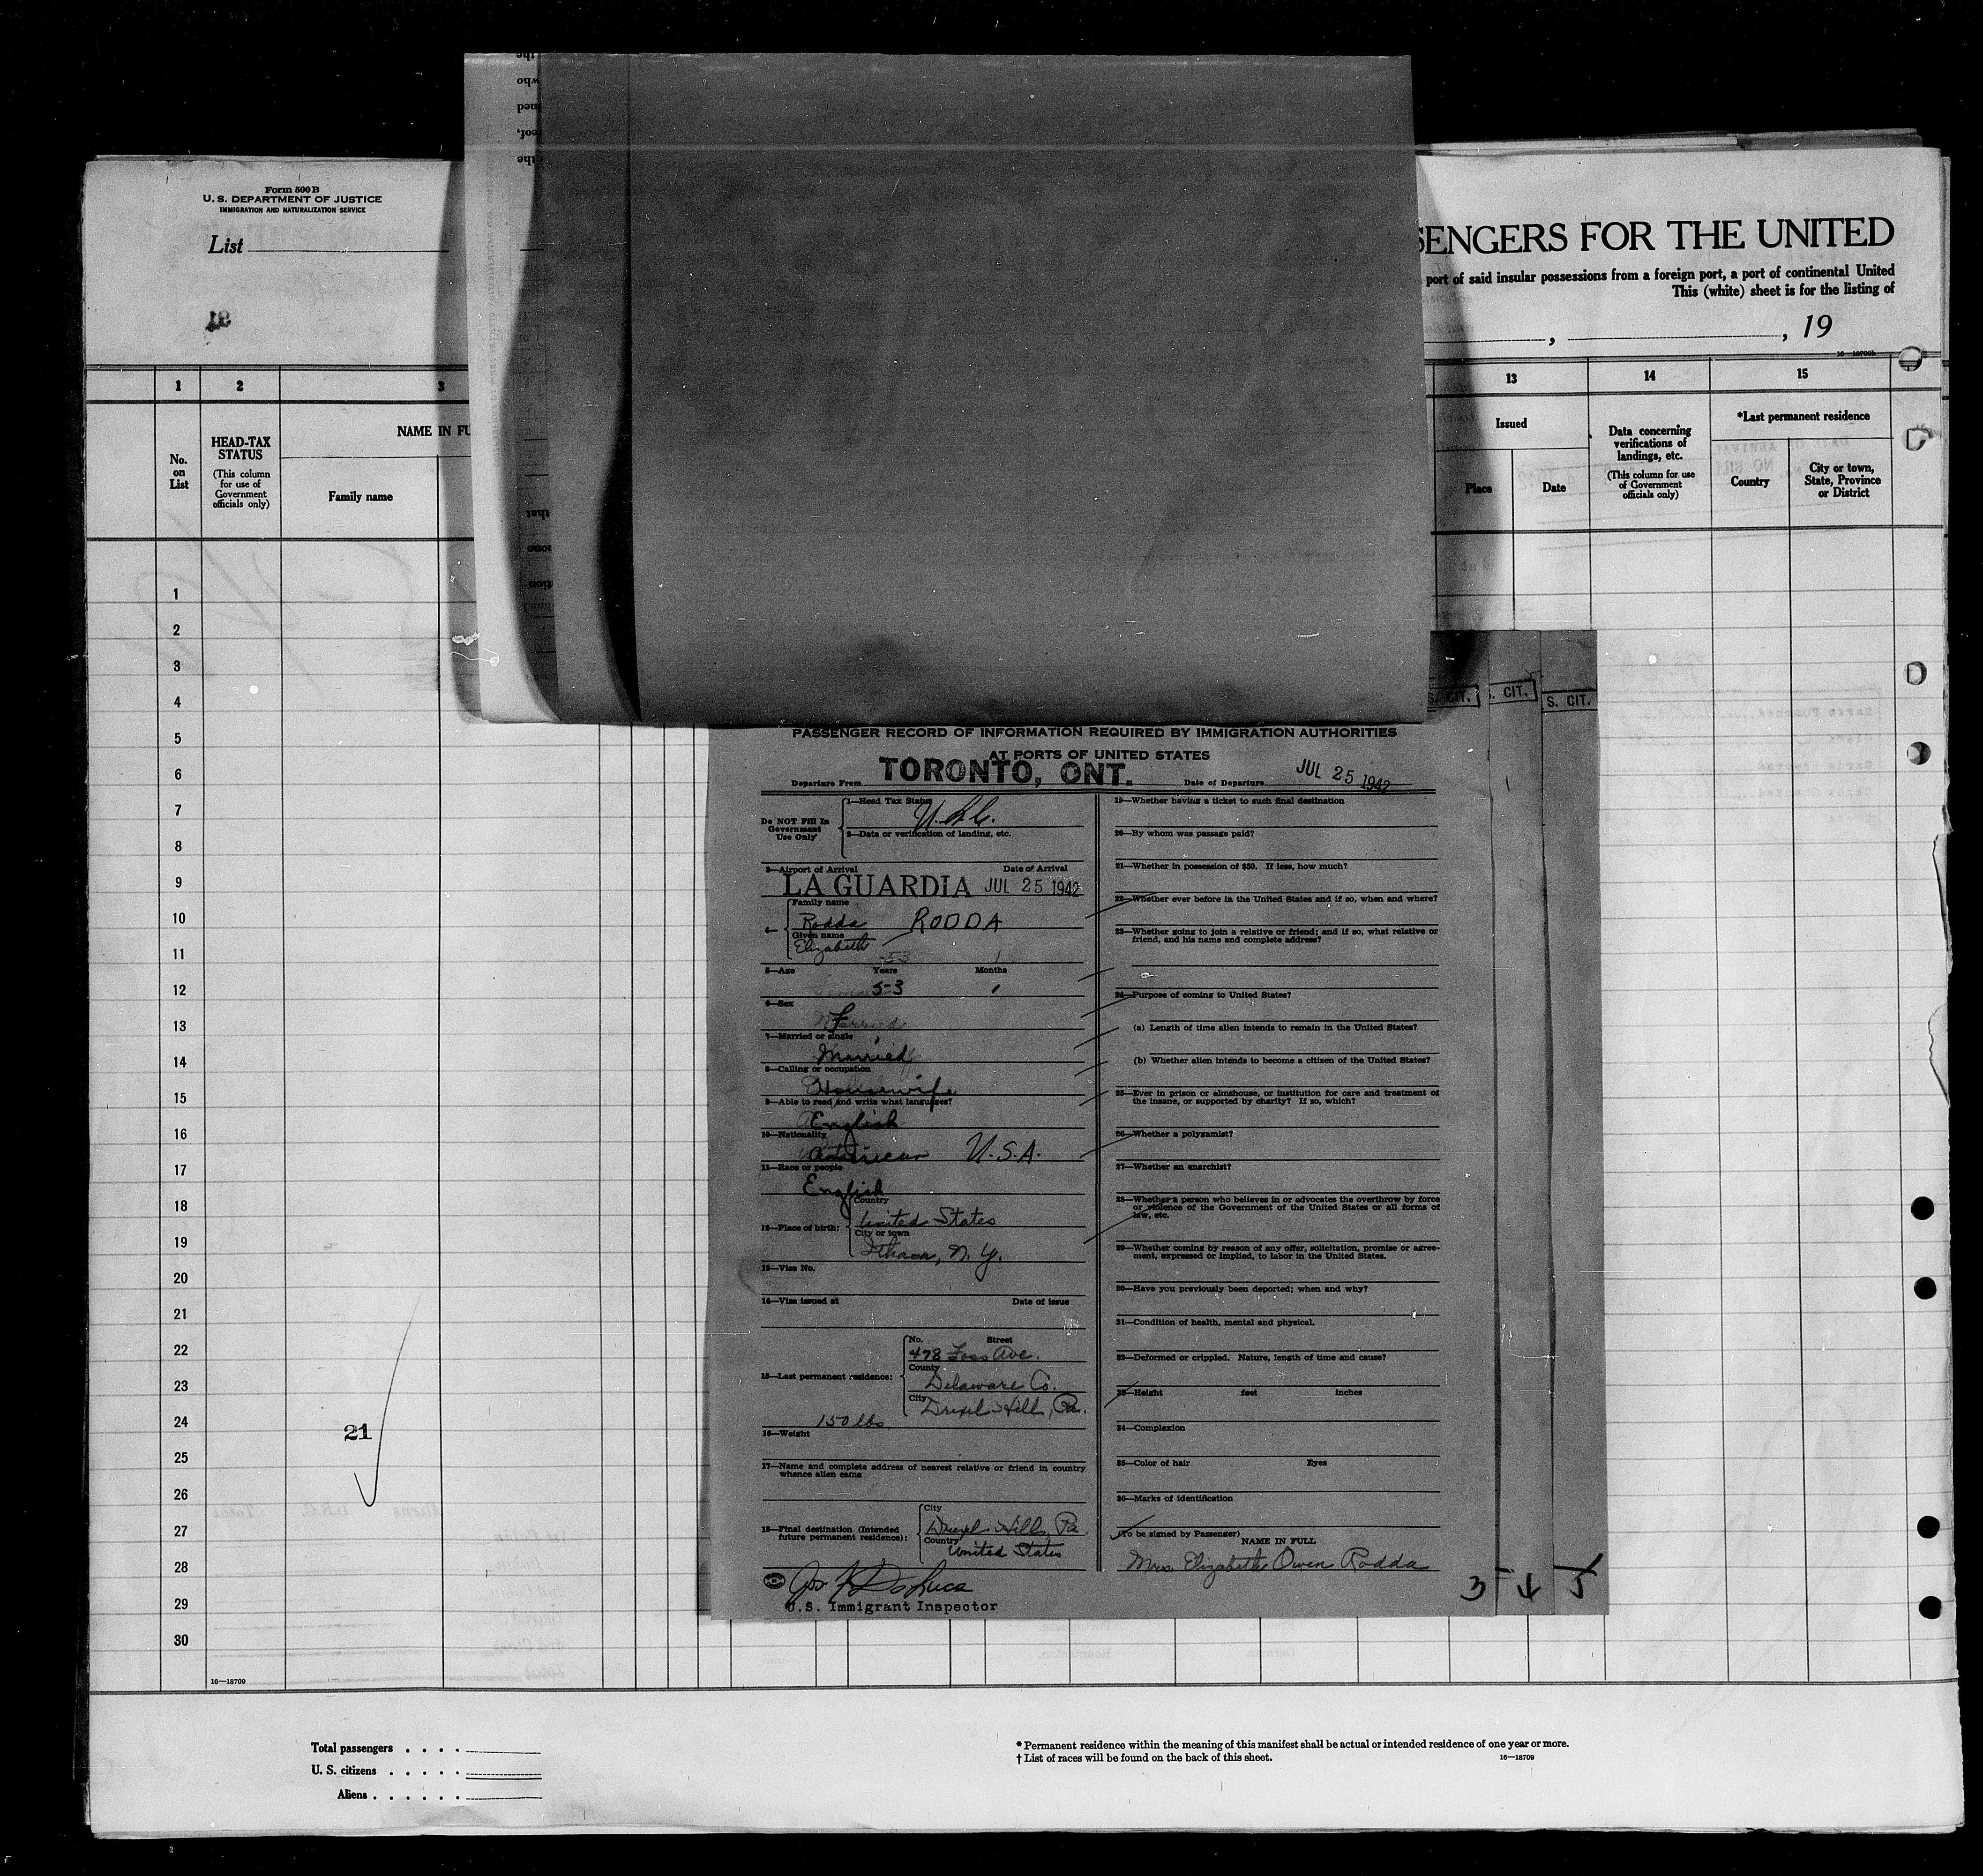 Form 500 B
U. S. DEPARTMENT OF JUSTICE
IMMIGRATION AND NATURALIZATION SERVICE
List
the
who
ined
eof,
the
SENGERS FOR THE UNITED
port of said insular possessions from a foreign port, a port of continental United
This (white) sheet is for the listing of
, , 19
1 2 3
No. on List
HEAD-TAX STATUS
(This column for use of Government officials only)
NAME IN FU
Family name
13 14 15
Issued
Place Date
Data concerning verifications of landings, etc.
(This column for use of Government officials only)
*Last permanent residence
Country
City or town, State, Province or District
1
2
3
4
5
6
7
8
9
10
11
12
13
14
15
16
17
18
19
20
21
22
23
24
25
26
27
28
29
30
21
S. CIT. S. CIT. S. CIT.
PASSENGER RECORD OF INFORMATION REQUIRED BY IMMIGRATION AUTHORITIES
AT PORTS OF UNITED STATES
Departure From TORONTO, ONT. Date of Departure JUL 25 1942
Do NOT Fill In Government Use Only
1—Head Tax Status
2—Data or verification of landing, etc.
3—Airport of Arrival Date of Arrival
LA GUARDIA JUL 25 1942
4—
Family name
Rodda RODDA
Given name
Elizabeth
5—Age Years Months
53
6—Sex
F
7—Married or single
Married
8—Calling or occupation
Housewife
9—Able to read and write what languages?
English
10—Nationality
American U.S.A.
11—Race or people
English
12—Place of birth:
Country
United States
City or town
Ithaca, N. Y.
13—Visa No.
14—Visa issued at Date of issue
15—Last permanent residence:
No. Street
478 Foss Ave.
County
Delaware Co.
City
Drexel Hill, Pa.
150 lbs
16—Weight
17—Name and complete address of nearest relative or friend in country
whence alien came
18—Final destination (Intended future permanent residence):
City
Drexel Hill, Pa.
Country
United States
U.S. Immigrant Inspector
19—Whether having a ticket to such final destination
20—By whom was passage paid?
21—Whether in possession of $50. If less, how much?
22—Whether ever before in the United States and if so, when and where?
23—Whether going to join a relative or friend; and if so, what relative or
friend, and his name and complete address?
24—Purpose of coming to United States?
(a) Length of time alien intends to remain in the United States?
(b) Whether alien intends to become a citizen of the United States?
25—Ever in prison or almshouse, or institution for care and treatment of
the insane, or supported by charity? If so, which?
26—Whether a polygamist?
27—Whether an anarchist?
28—Whether a person who believes in or advocates the overthrow by force
or violence of the Government of the United States or all forms of
law, etc.
29—Whether coming by reason of any offer, solicitation, promise or agree-
ment, expressed or implied, to labor in the United States.
30—Have you previously been deported; when and why?
31—Condition of health, mental and physical.
32—Deformed or crippled. Nature, length of time and cause?
33—Height feet inches
34—Complexion
35—Color of hair Eyes
36—Marks of identification
(To be signed by Passenger)
NAME IN FULL
Mrs. Elizabeth Owen Rodda
3 4 5
16—18709
Total passengers . . . .
U. S. citizens . . . . .
Aliens . . . . . .
* Permanent residence within the meaning of this manifest shall be actual or intended residence of one year or more.
† List of races will be found on the back of this sheet. 16—18709